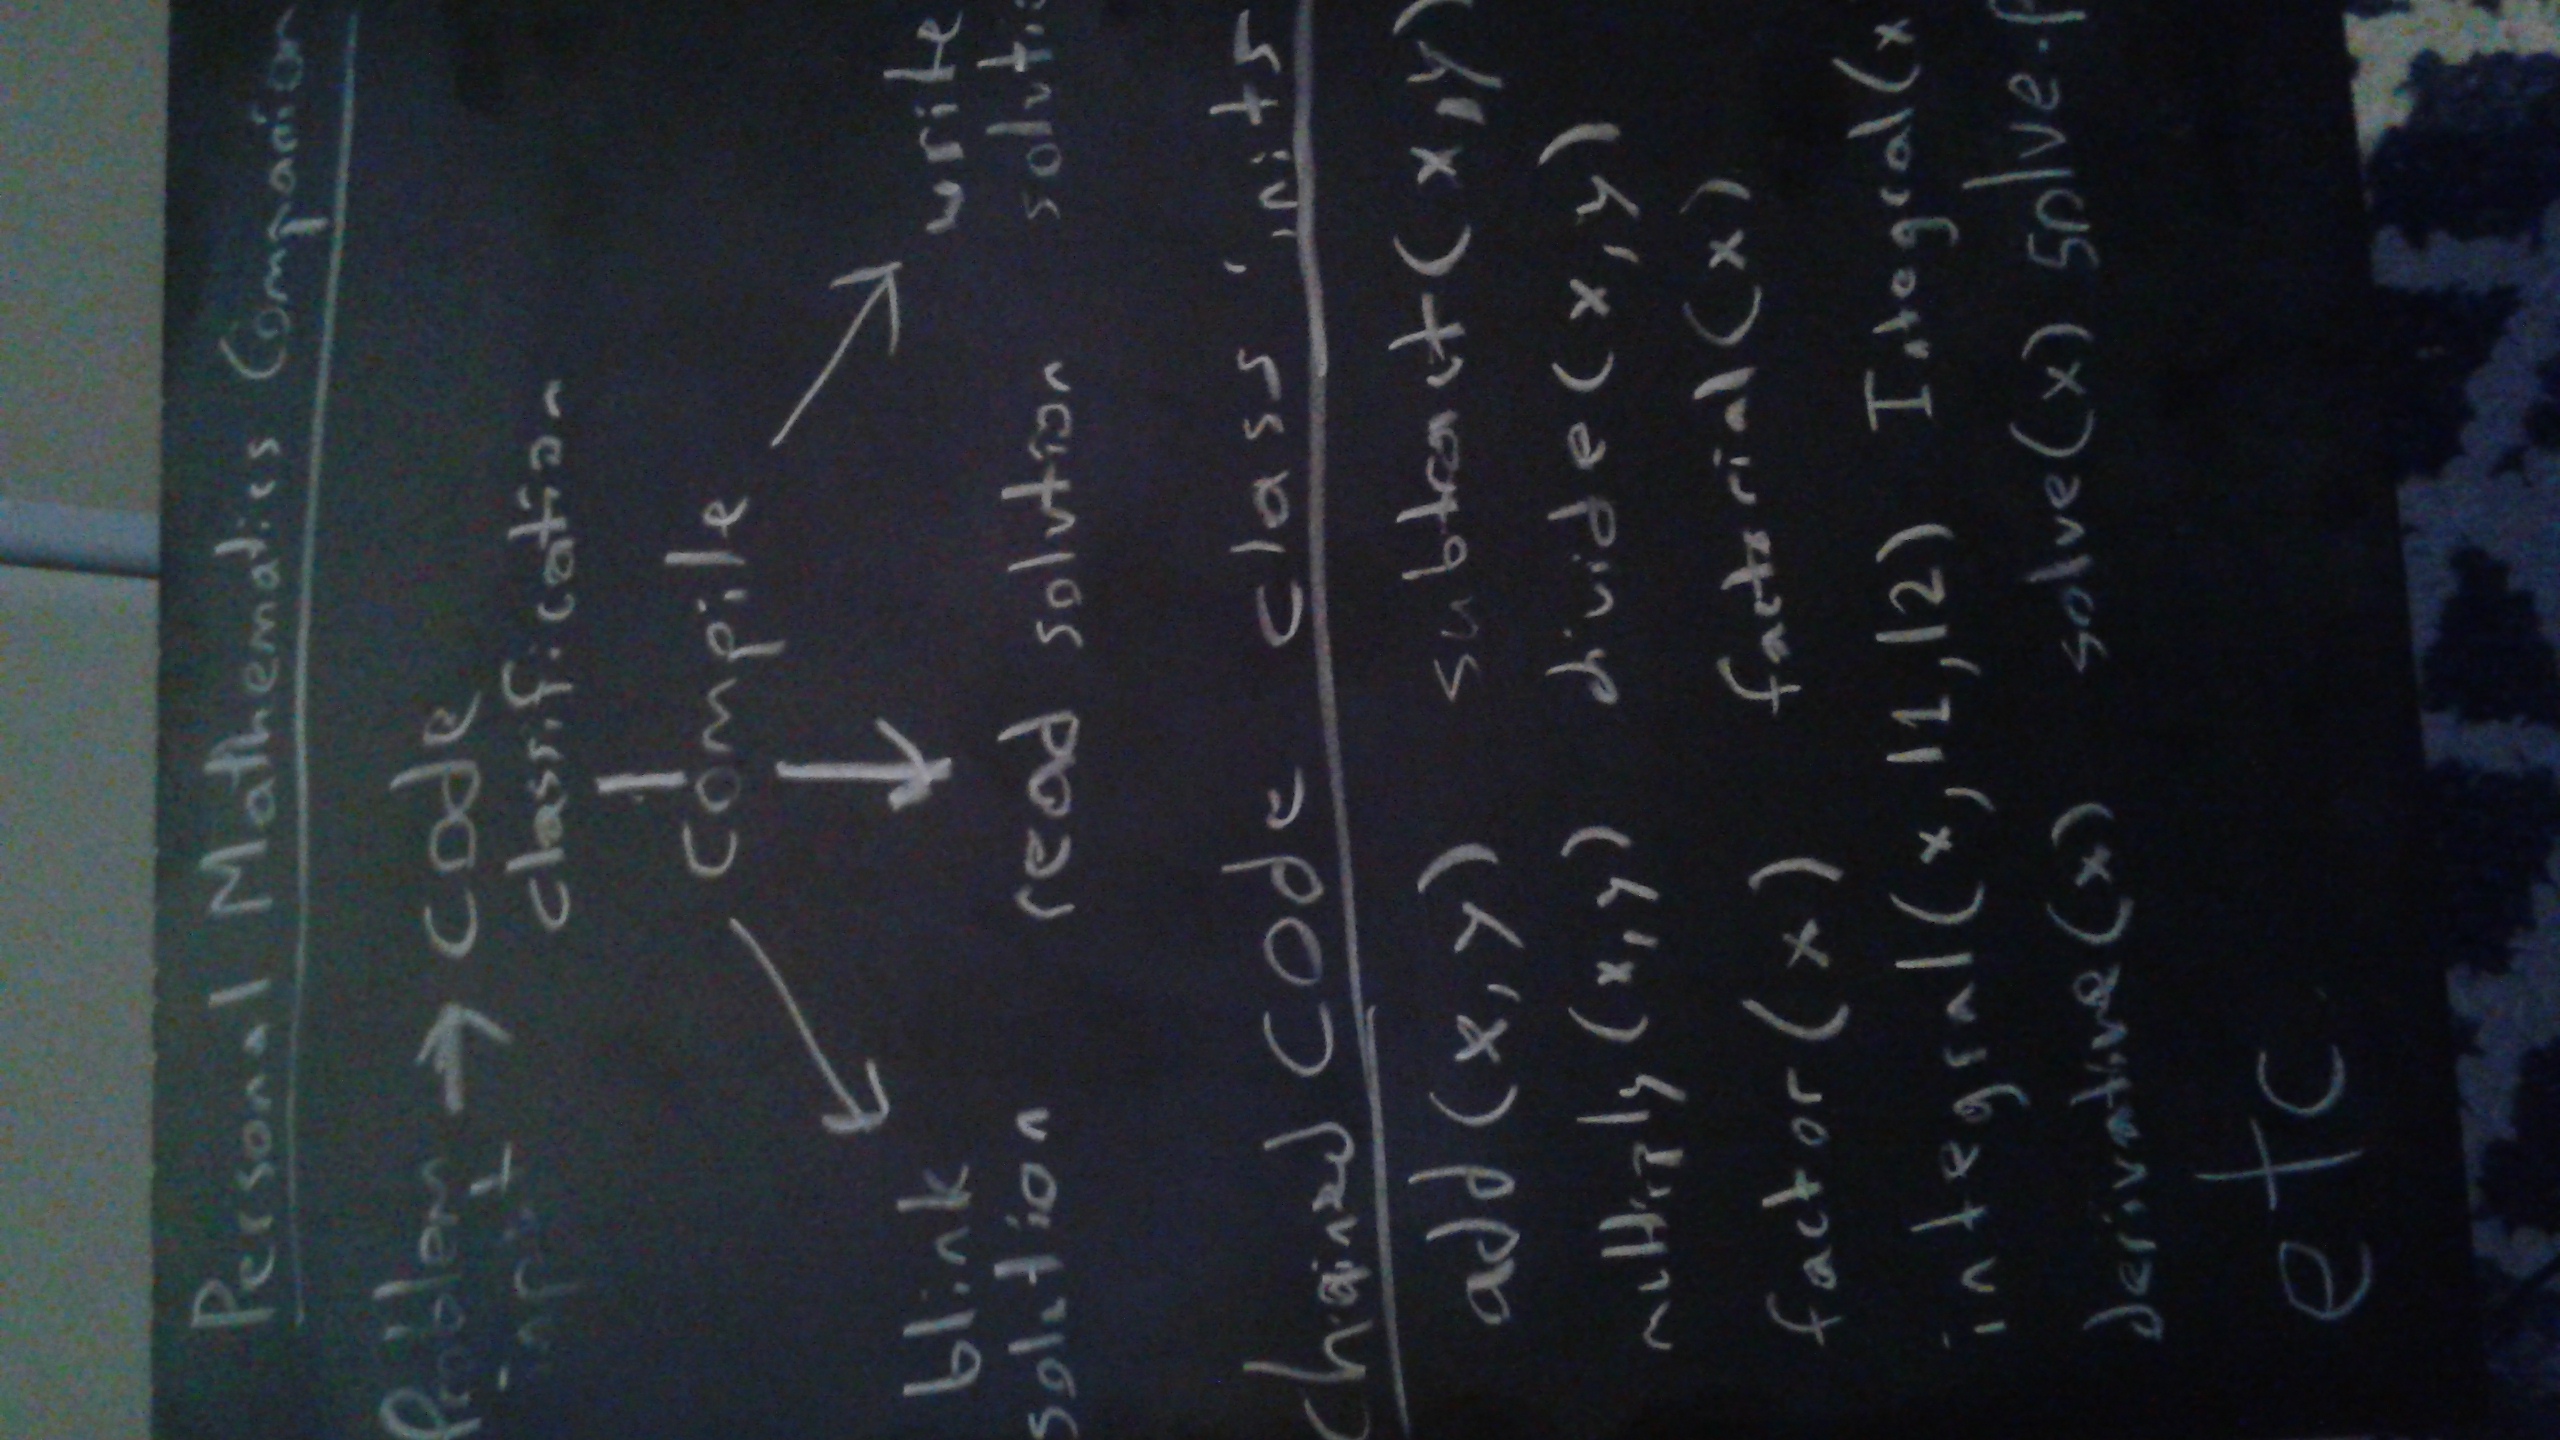 Personal Mathematics Companion
Problem → code
input classification
compile
blink solution
read solution
write soluti
chained code class inits
add(x,y) subtract(x,y)
multiply(x,y) divide(x,y)
factor(x) factorial(x)
integral(x,l1,l2) Integral(x
derivative(x) solve(x) solve.p
etc